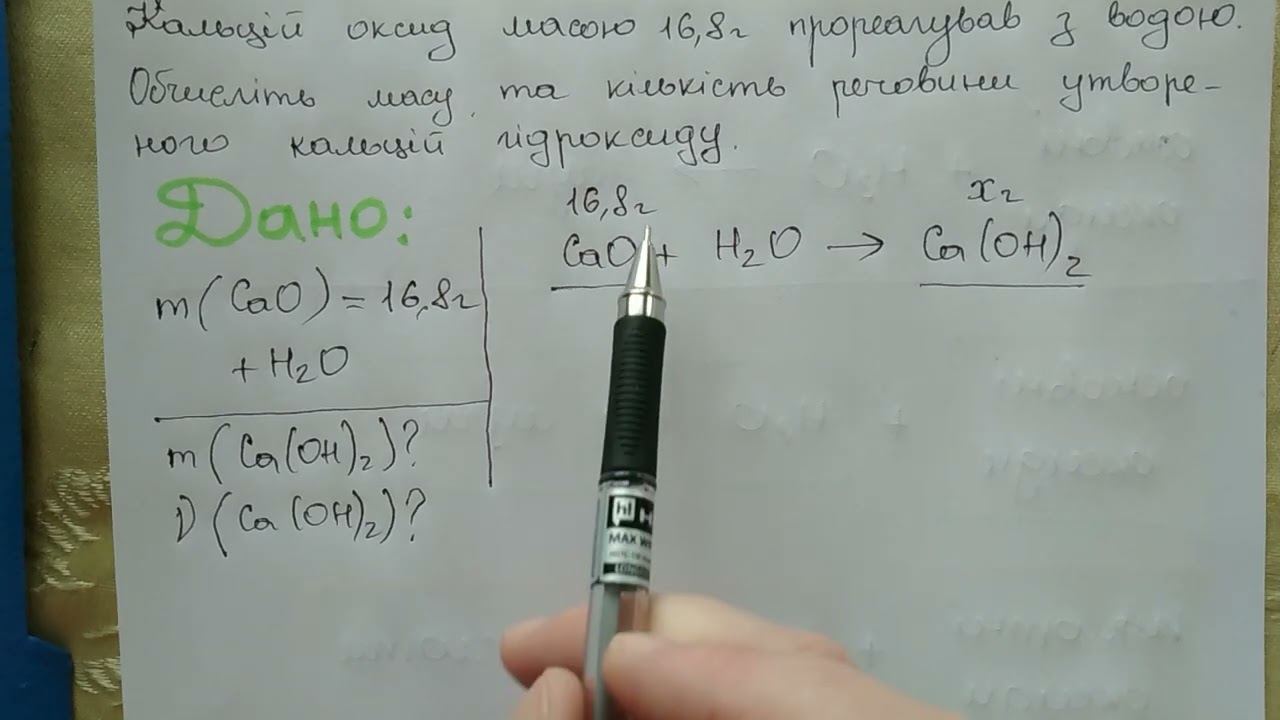 Кальцій оксид масою 16,8г прореагував з водою.
Обчисліть масу та кількість речовини утворе-
ного кальцій гідроксиду.
Дано:
m(CaO) = 16,8г
+ H₂O
m(Ca(OH)₂)?
ν(Ca(OH)₂)?
16,8г xг
CaO + H₂O → Ca(OH)₂
H
MAX W